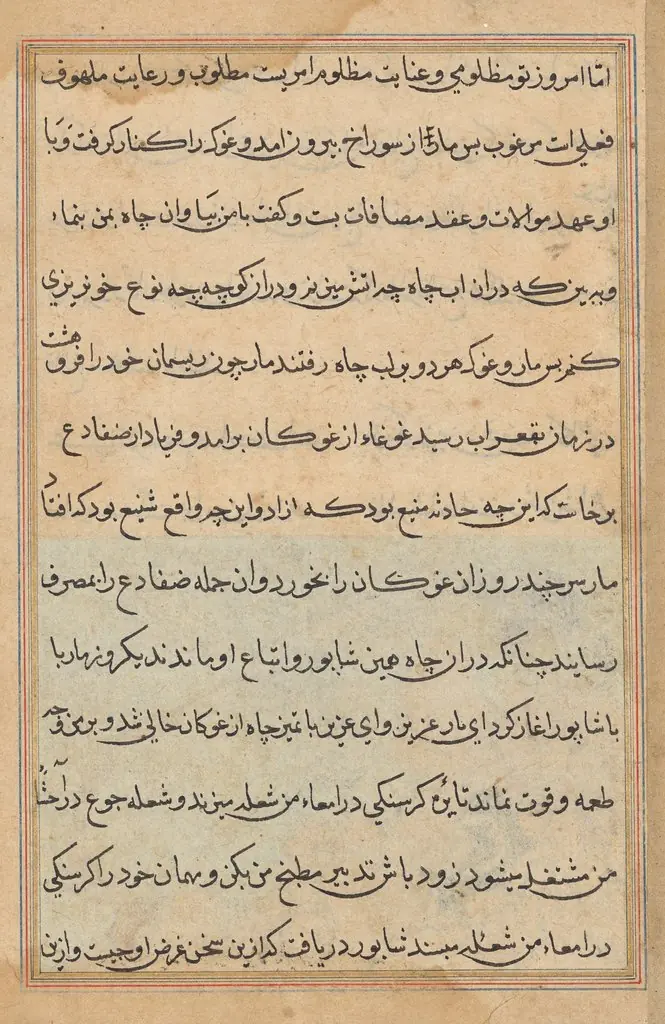 اما امروز تو مظلومی و عنایت مظلوم امریست مطلوب و رعایت ملهوف
فعلی است مرغوب بس مار از سوراخ بیرون امد و غوک را کنار کرفت و با
او عهد موالات و عقد مصافات بست و کفت با من بیا و ان چاه بمن بنماء
و ببین که دران اب چاه چه اتش میزنم و دران کوچه بچه نوع خونریزی
کنم بس مار و غوک هر دو بر لب چاه رفتند مار چون ریسمان خود را فروهشت
در زمان بقعر اب رسید غوغاء از غوکان برامد و فریاد از ضفادع
برخاست که این چه حادثه منیع بود که زاد و این چه واقع شنیع بود که افتاد
مار سر چند روز ان غوکان را بخورد و ان جمله ضفادع را بمصرف
رسانید چنانکه دران چاه همین شابور و اتباع او ماندند یکروز مار با
با شاپور اغاز کرد ای یار عزیز و ای عزیز با تمیز چاه از غوکان خالی شد و برین وجه
طعمه و قوت نماند تایٔره کرسنکی در امعاء من شعله میزند و شعله جوع در احشاء
من مشتغل میشود زود باش تدبیر مطبخ من بکن و مهمان خود را کرسنکی
در امعاء من شعله مبند شابور دریافت که ازین سخن غرض او چیست و ازین